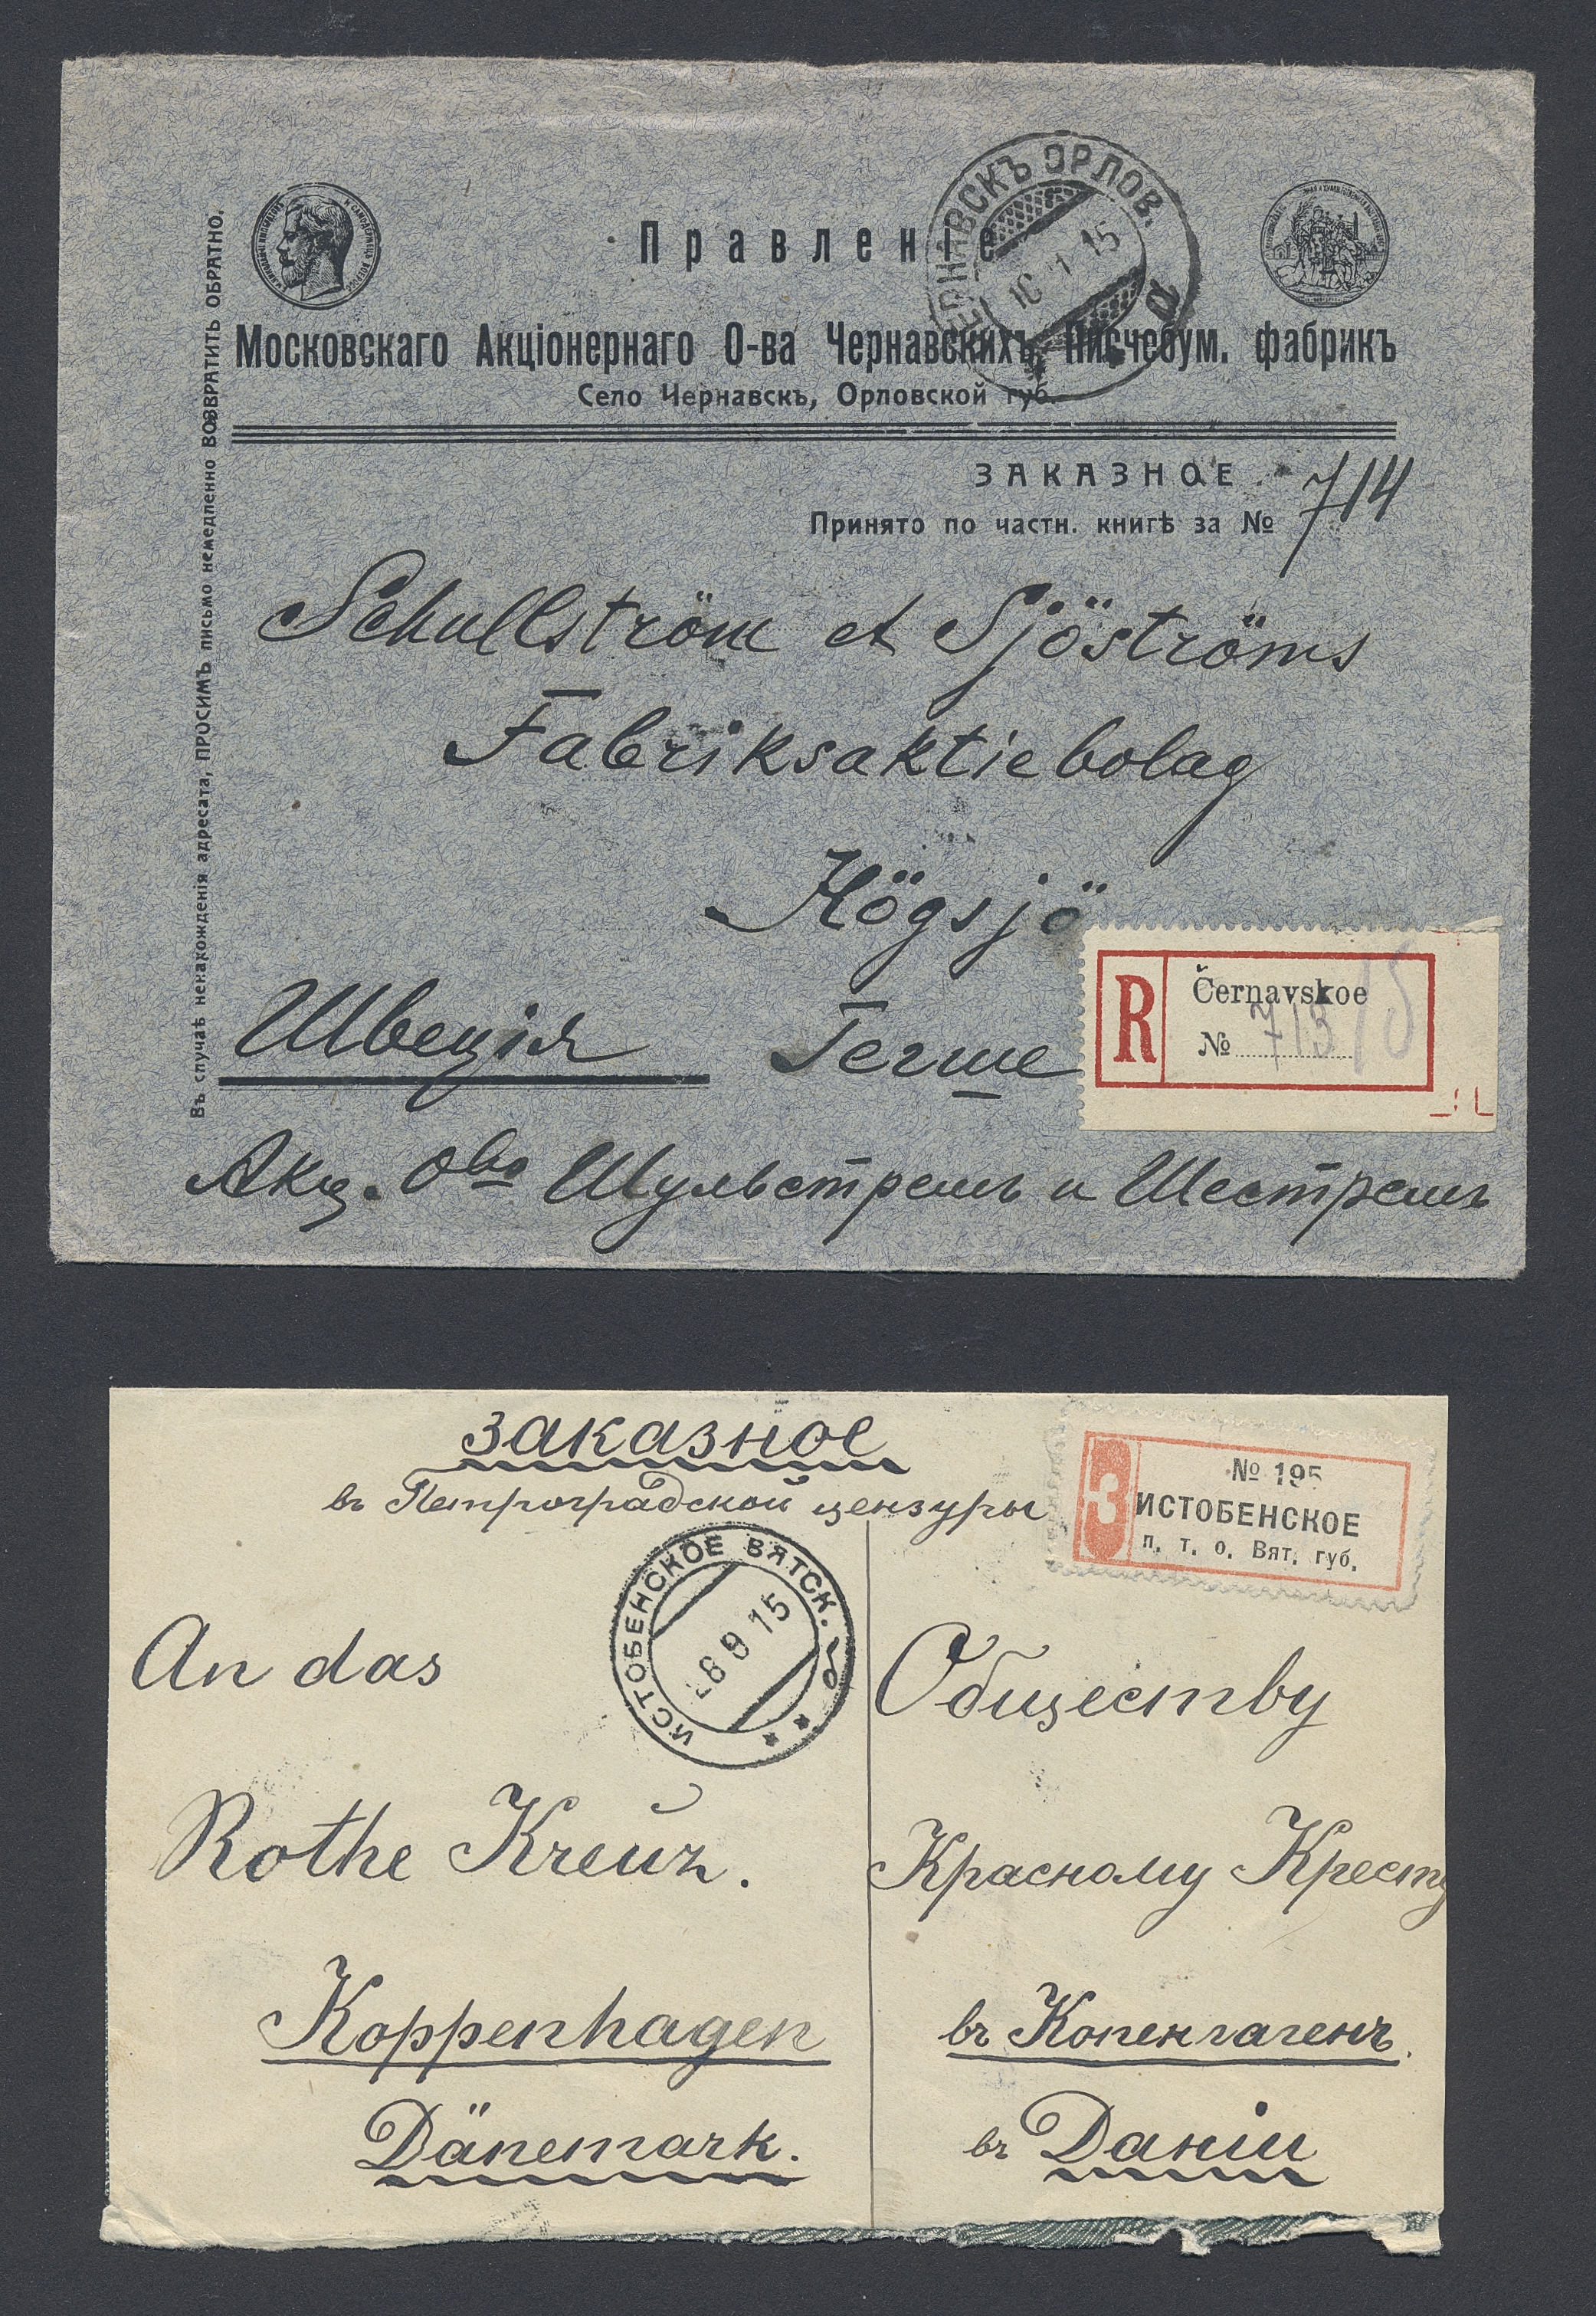 Правленіе
Московскаго Акціонернаго О-ва Чернавскихъ Писчебум. фабрикъ
Село Чернавскъ, Орловской губ.
ЧЕРНАВСКЪ ОРЛОВ.
1 15
а
Въ случаѣ ненахожденія адресата, ПРОСИМЪ письмо немедленно ВОЗВРАТИТЬ ОБРАТНО.
ЗАКАЗНОЕ
714
Принято по частн. книгѣ за №
Schullström et Sjöströms
Fabriksaktiebolag
Högsjö
R
Černavskoe
№ 713
Швеція Гегше
Акц. Ово Шульстремъ и Шестремъ
заказное
въ Петроградской цензуры
З
№ 195
ИСТОБЕНСКОЕ
п. т. о. Вят. губ.
ИСТОБЕНСКОЕ ВЯТСК.
-8 9 15
An das
Rothe Kreuz.
Koppenhagen
Dänemark.
Обществу
Красному Кресту
въ Копенгагенъ.
въ Даніи